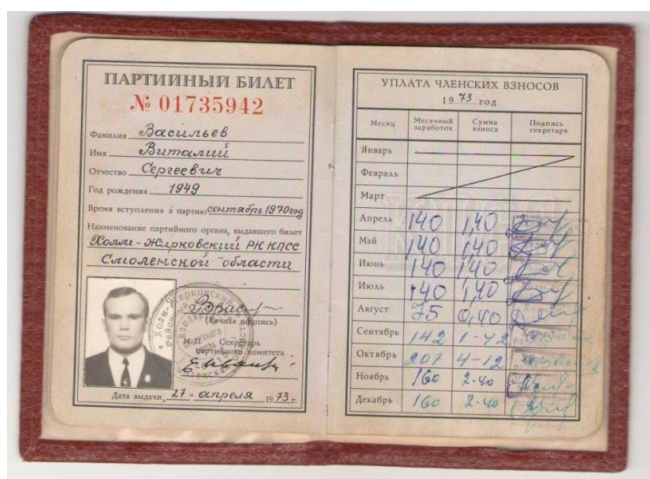 ПАРТИЙНЫЙ БИЛЕТ
№ 01735942
Фамилия Васильев
Имя Виталий
Отчество Сергеевич
Год рождения 1949
Время вступления в партию сентябрь 1970 год
Наименование партийного органа, выдавшего билет
Холм-Жирковский РК КПСС
Смоленской области
(Личная подпись)
М.П. Секретарь
партийного комитета
Дата выдачи 27 апреля 1973 г.
УПЛАТА ЧЛЕНСКИХ ВЗНОСОВ
1973 год
Месяц Месячный заработок Сумма взноса Подпись секретаря
Январь
Февраль
Март
Апрель 140 1,40
Май 140 1,40
Июнь 140 1,40
Июль 140 1,40
Август 75 0,40
Сентябрь 142 1-42
Октябрь 207 4-12
Ноябрь 160 2-40
Декабрь 160 2-40